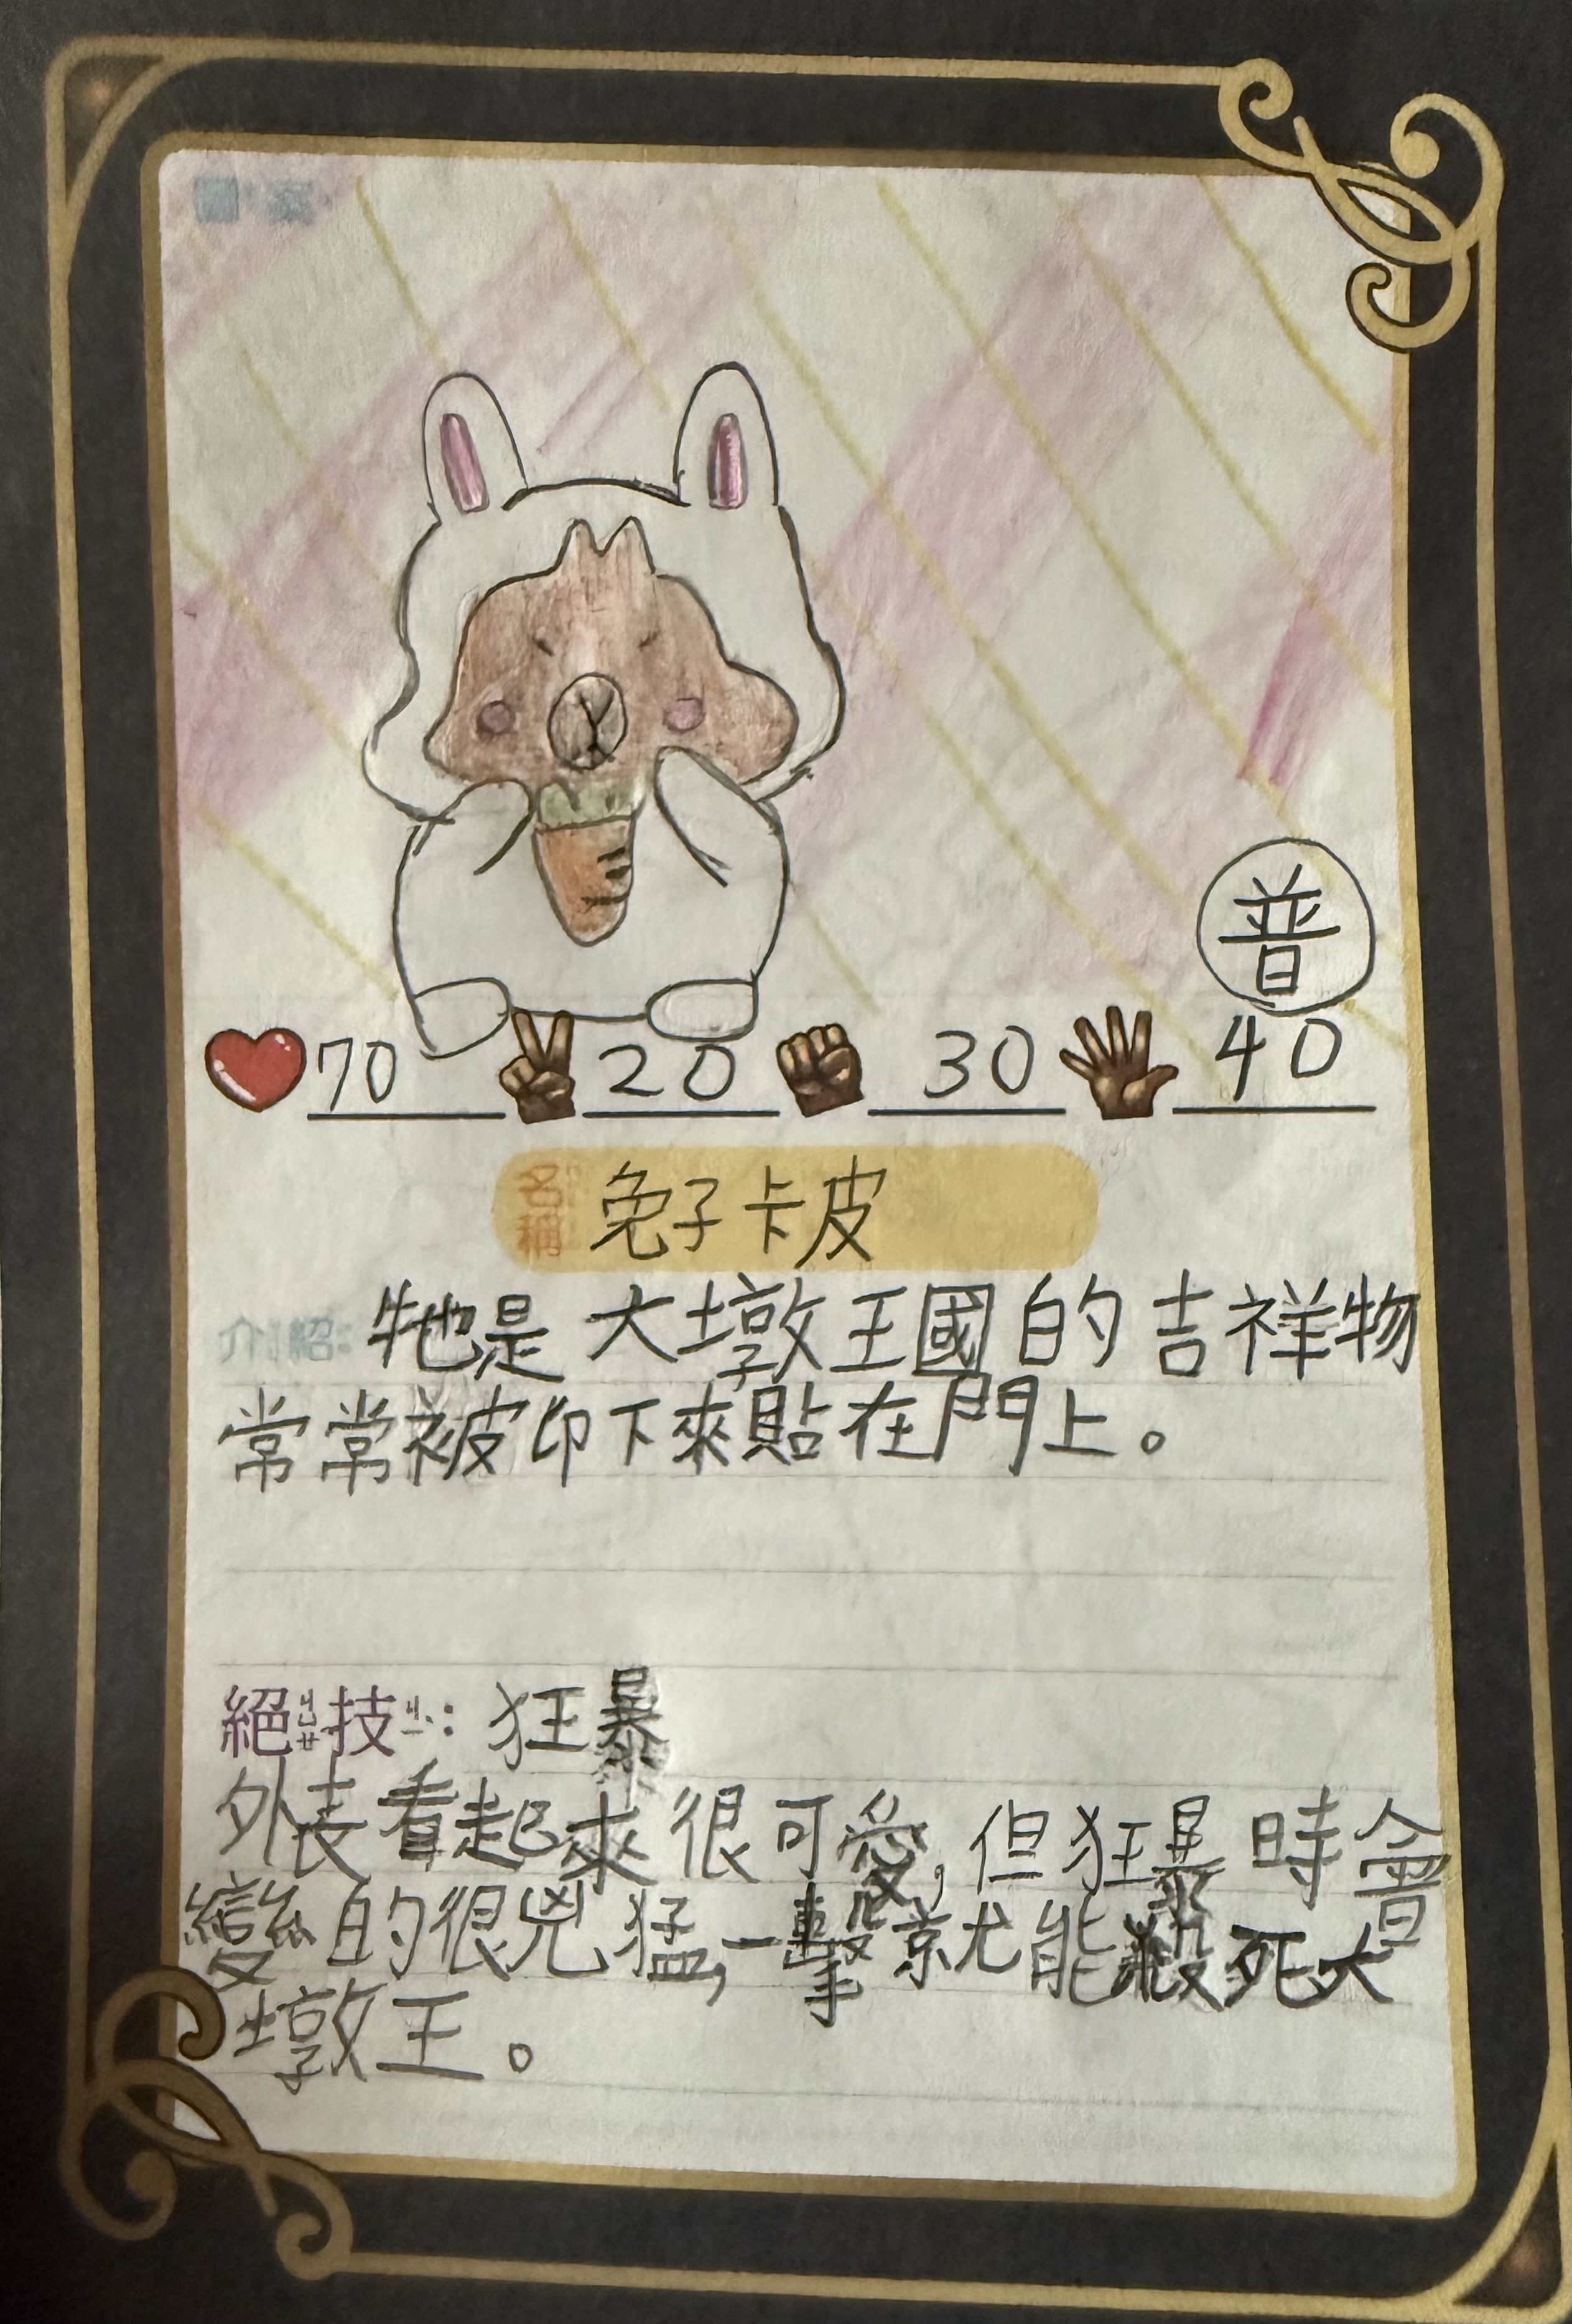 圖案
普
70 20 30 40
名稱 兔子卡皮
介紹: 牠是大墩王國的吉祥物
常常被印下來貼在門上。
絕ㄐㄩㄝˊ技ㄐㄧˋ: 狂暴
外表看起來很可愛,但狂暴時會
變的很兇猛,一擊就能殺死大
墩王。